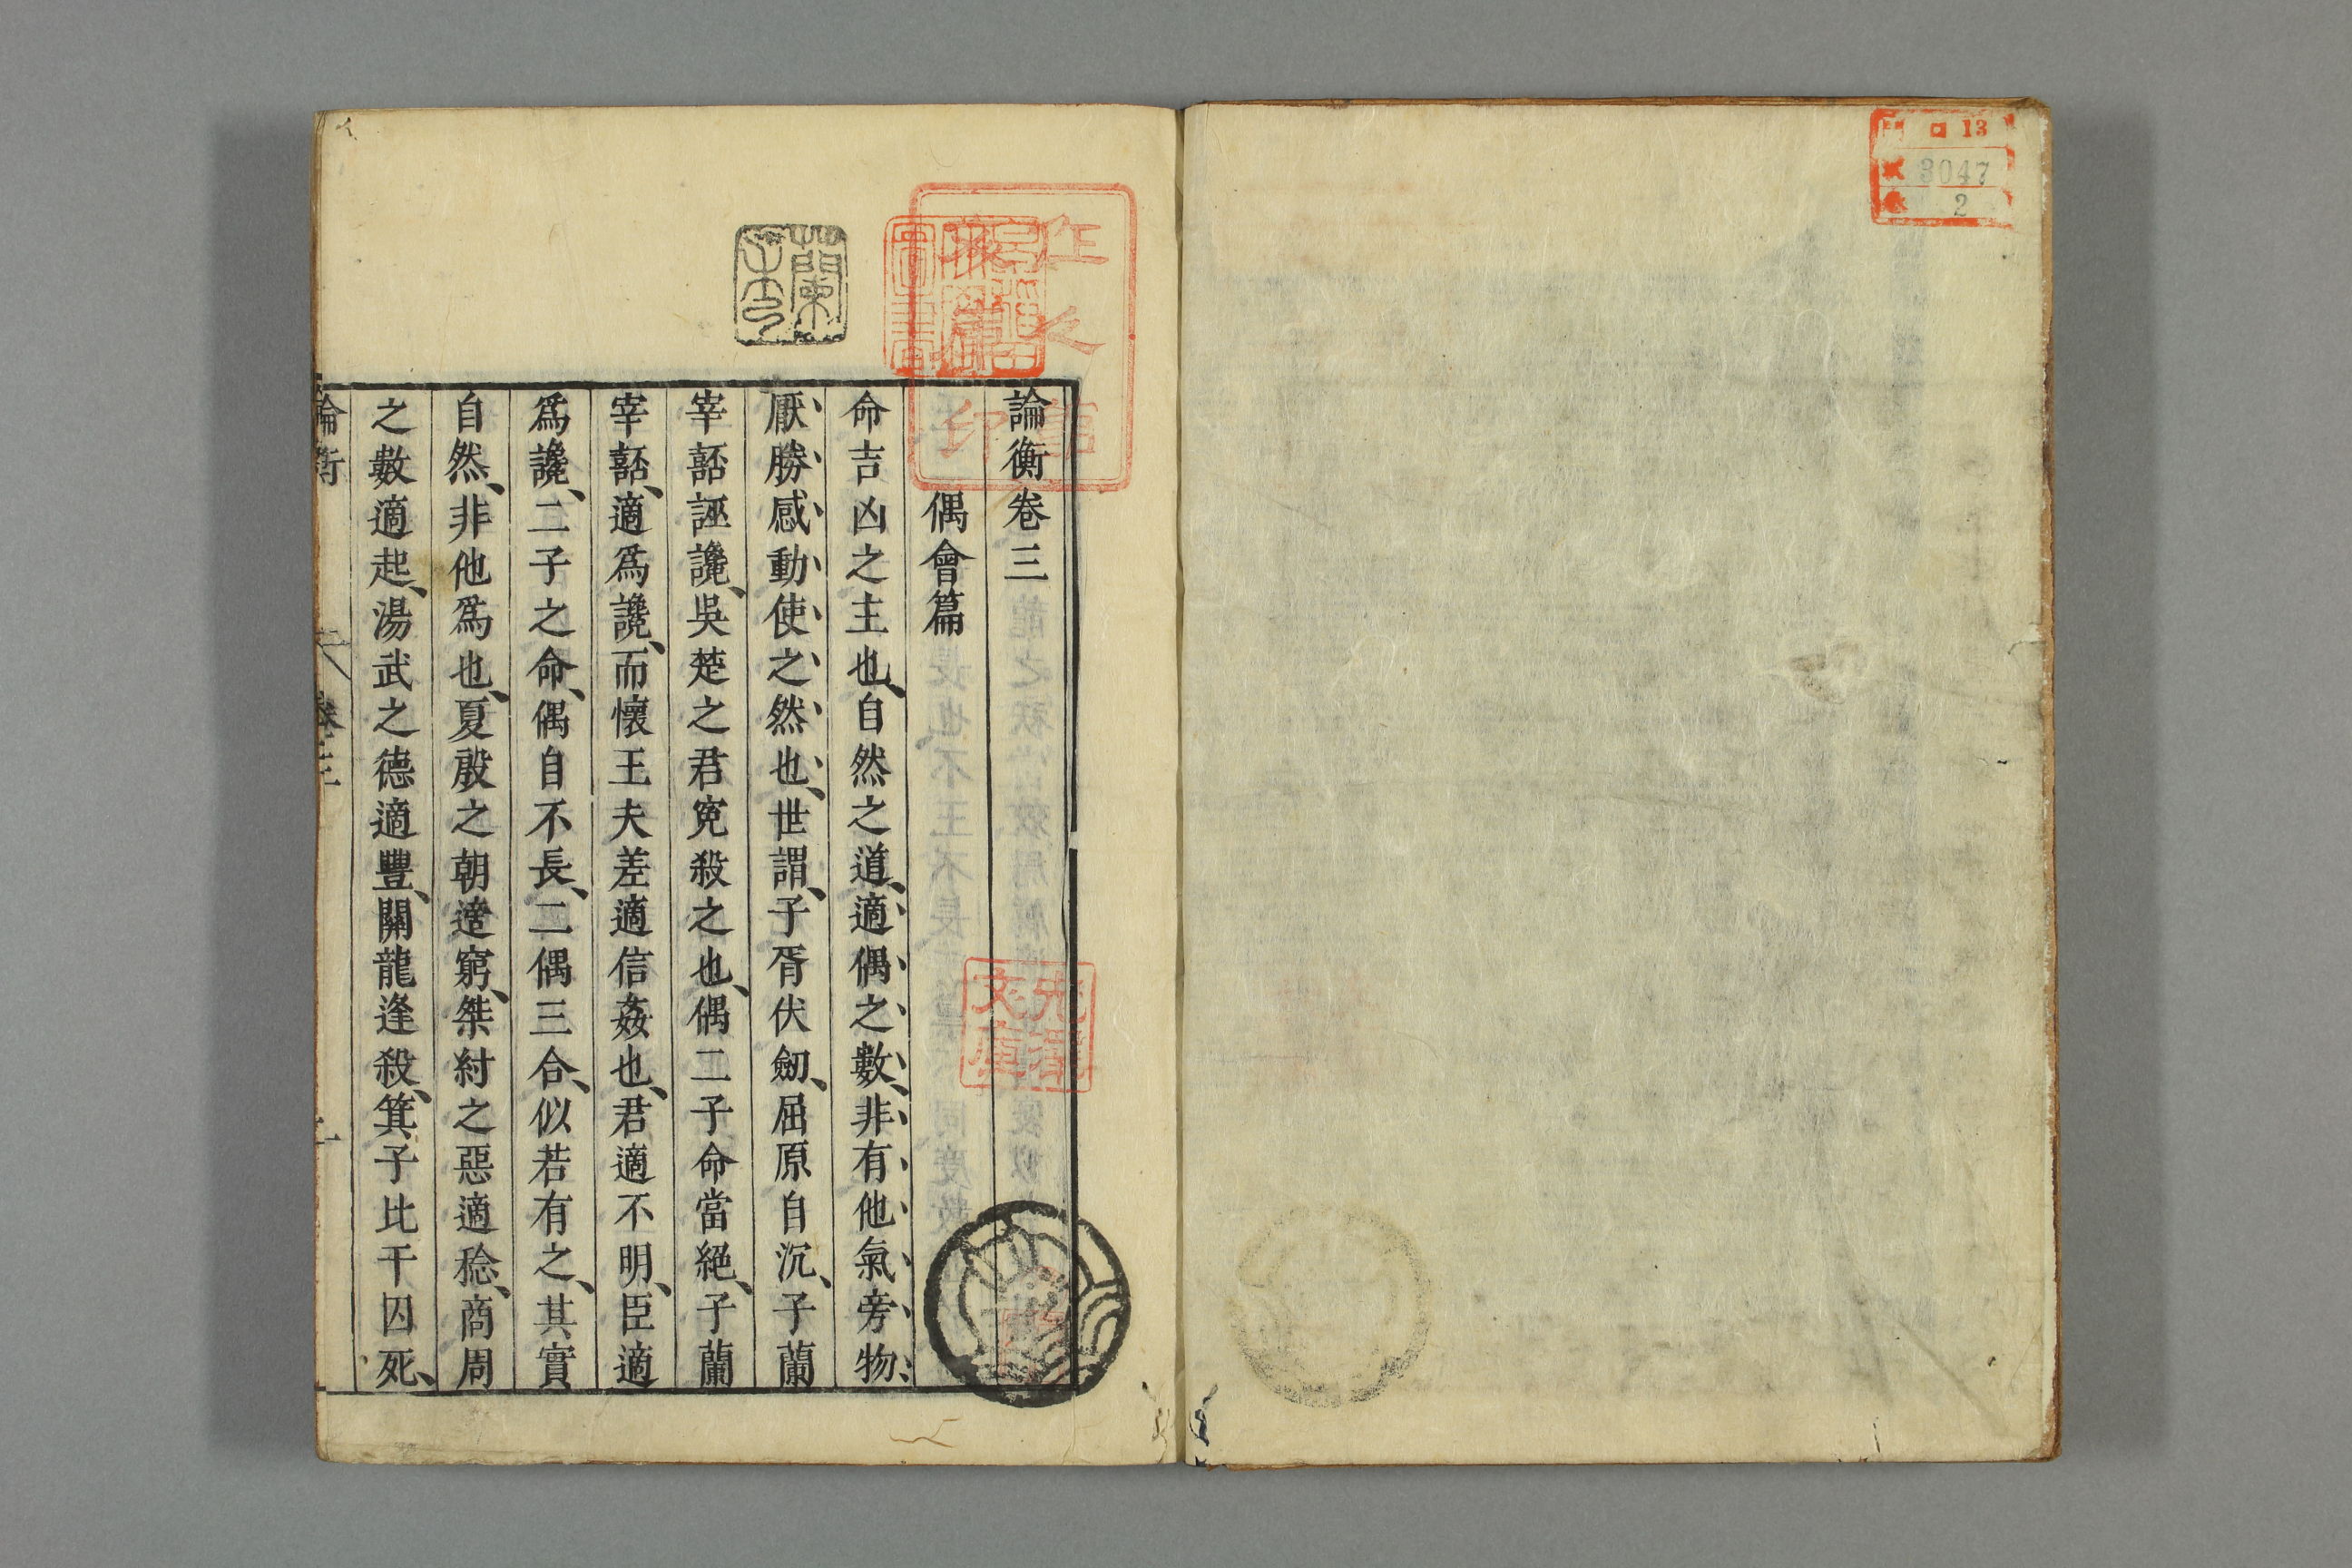 13
3047
2
論衡卷三
偶會篇
命吉凶之主也、自然之道、適偶之數、非有他氣旁物
厭勝感動使之然也、世謂、子胥伏劒、屈原自沉、子蘭
宰嚭誣讒、吳楚之君寃殺之也、偶二子命當絕、子蘭
宰嚭、適爲讒、而懷王夫差適信姦也、君適不明、臣適
爲讒、二子之命、偶自不長、二偶三合、似若有之、其實
自然、非他爲也、夏殷之朝適窮、桀紂之惡適稔、商周
之數適起、湯武之德適豐、關龍逢殺、箕子比干囚死、
論衡
卷三